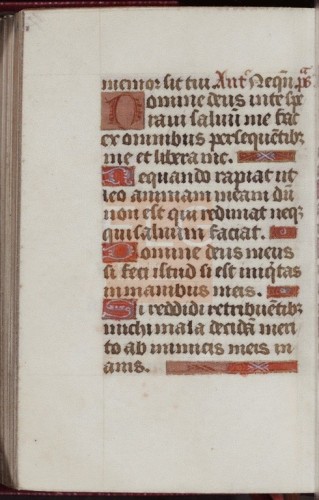 memor sit tui. Ant͛ Neqn̄. ps͛
Domine deus in te spe
raui saluū me fac
ex omnibus persequētibꝫ
me et libera me.
Nequando rapiat ut
leo animam meam dū
non est qui redimat neqꝫ
qui saluum faciat.
Domine deus meus
si feci istud si est iniq̄tas
in manibus meis.
Si reddidi retribuētibꝫ
michi mala decidā meri
to ab inimicis meis in
anis.